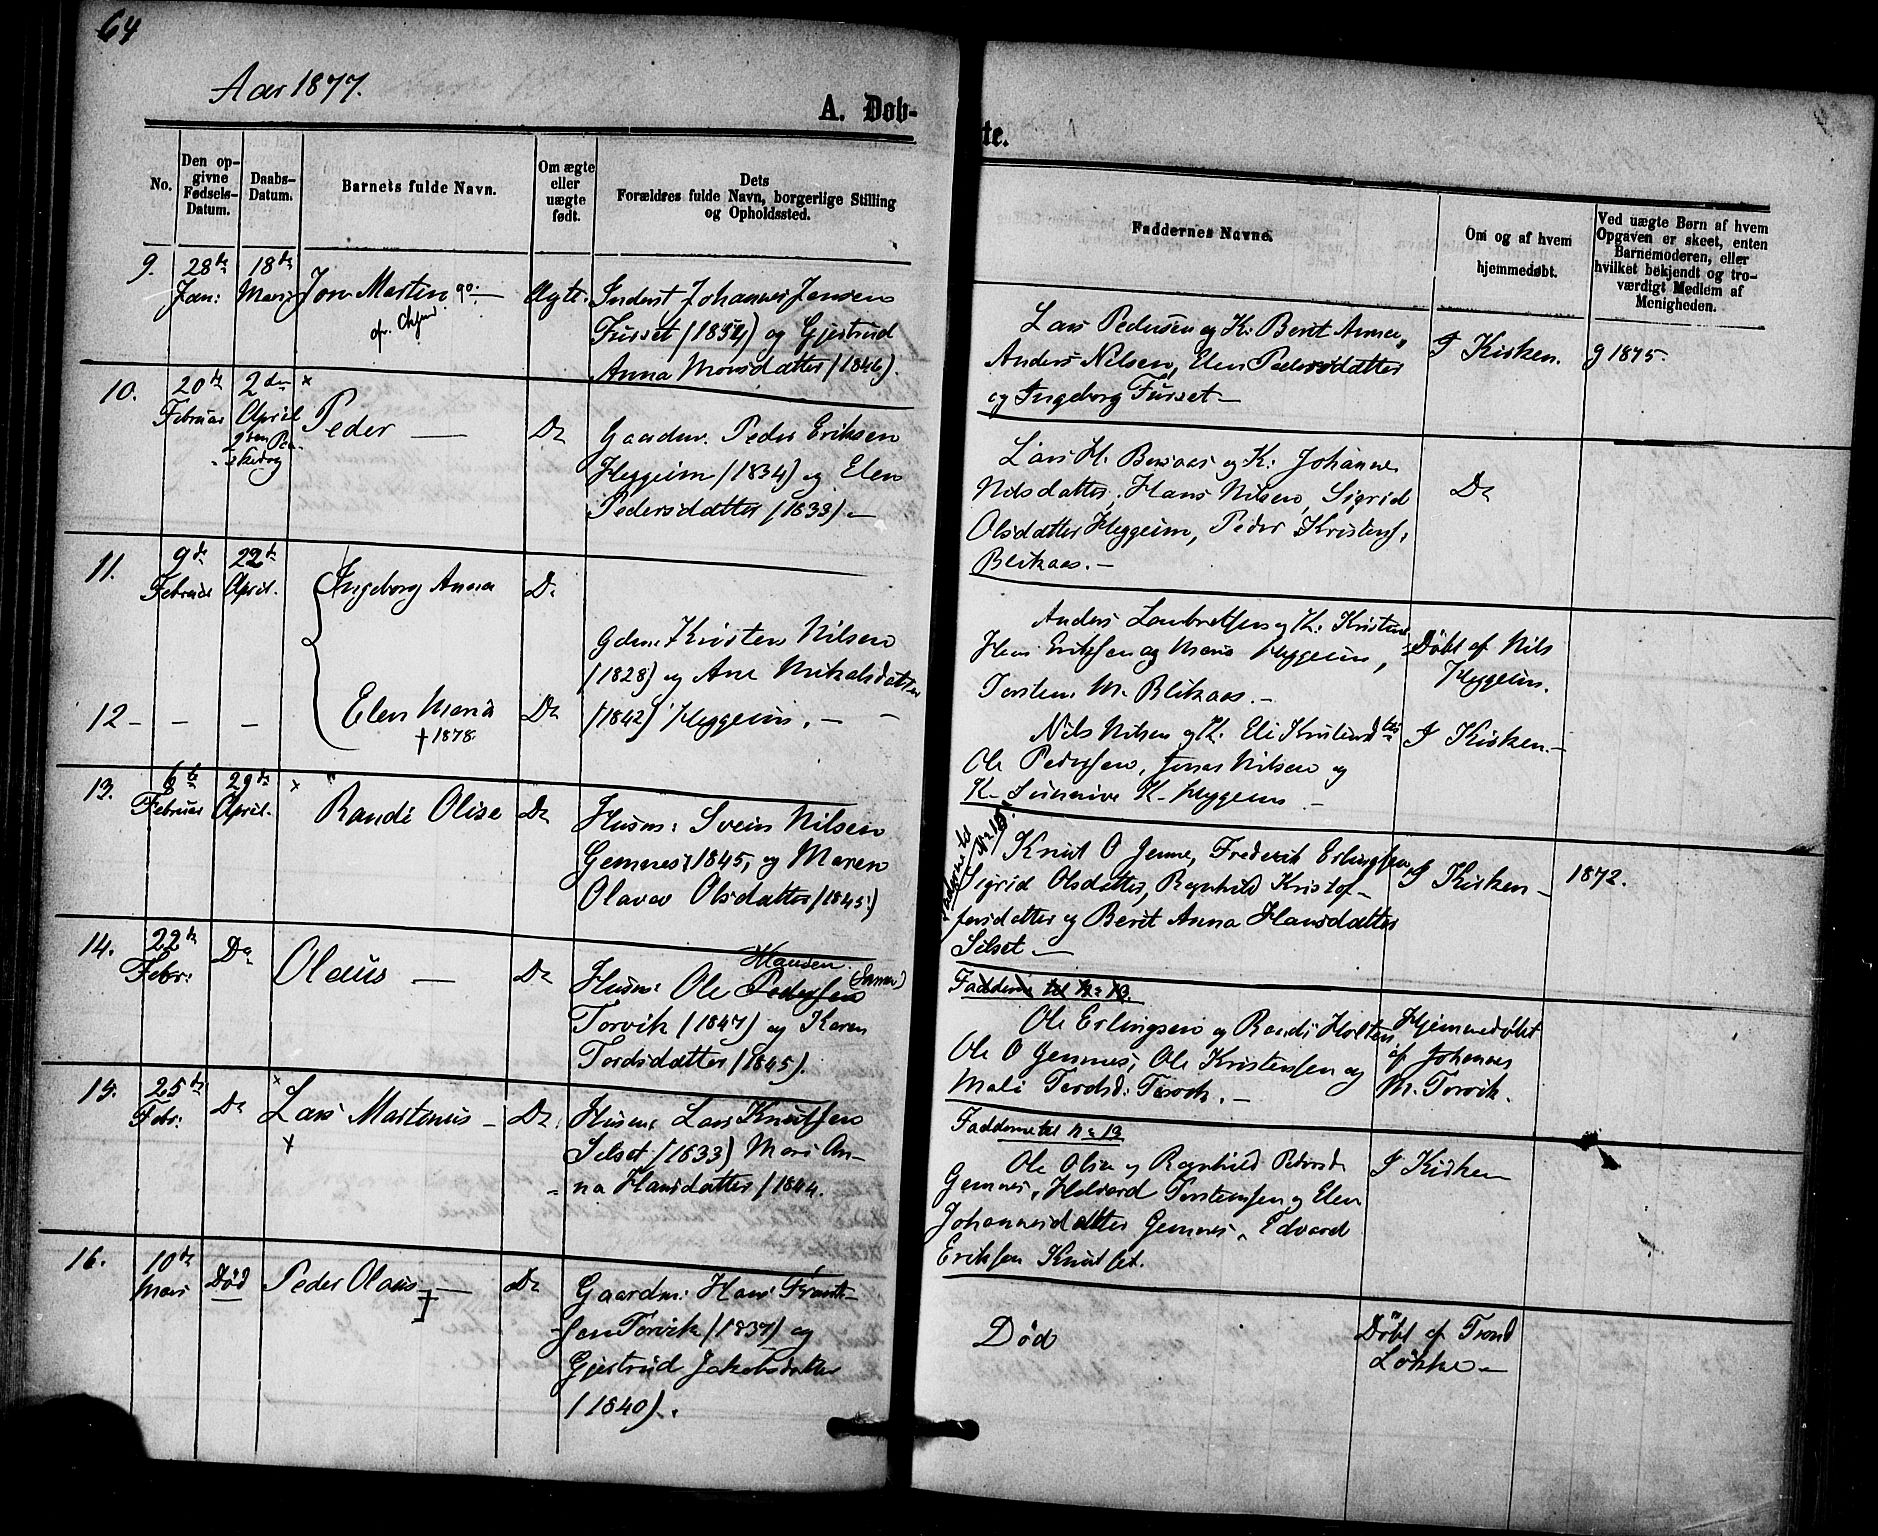 64
Aar 1877.
A. Døb-
No.
Den op-
givne
Fødsels-
Datum.
Daabs-
Datum.
Barnets fulde Navn.
Om ægte
eller
uægte
født.
Dets
Forældres fulde Navn, borgerlige Stilling
og Opholdssted.
9.
28de
Jan:
18de
Mars
Jon Martin
Ægte.
Inderst Johannes Jensen
Furset (1834) og Gjertrud
Anna Monsdatter (1846).
10.
20de
Februar
2den
April
2den Paa-
skedag
Peder —
Do
Gaardm. Peder Eriksen
Heggeim (1834) og Elen
Pedersdatter (1833). —
11.
9de
Februar
22de
April.
Ingeborg Anna
Do
Gdm. Kristen Nilsen
(1828) og Ane Nikolsdatter
12 –
–
–
Elen Maria
† 1878.
Do
(1842) Heggeim. — —
13.
6te
Februar
29de
April.
Randi Olise
Do
Husm: Svein Nilsen
Gemnes, 1845, og Maren
Olava Olsdatter (1845)
14.
22de
Febr:
Do
Olaus —
Do
Hansen
Husm: Ole Pedersen
Torvik (1847) og Karen
Tordsdatter (1845).
15.
25de
Febr:
Do
Lars Martinus –
Do
Husm. Lars Knutsen
Silset (1833) Mari An-
na Hansdatter (1844.
16.
10de
Mars
Død
Peder Olaus —
†
Do
Gaardm: Hans Trond-
sen Torvik (1837) og
Gjertrud Jakobsdatter
(1840).
te.
Faddernes Navne.
Om og af hvem
hjemmedøbt.
Ved uægte Børn af hvem
Opgaven er skeet, enten
Barnemoderen, eller
hvilket bekjendt og tro-
værdigt Medlem af
Menigheden.
Lars Pedersen og K: Berit Anna,
Anders Nilsen, Elen Pedersdatter
og Ingeborg Furset —
I Kirken.
g 1875.
Lars H. Bersaas og K: Johanne
Nilsdatter, Hans Nilsen, Sigrid
Olsdatter Heggeim, Peder Kristens.
Blikaas. —
Do
Anders Lambretsen og K: Kristine
Eriksen og Maria Heggeim,
Torsten M. Blikaas. —
Døbt af Nils
Heggeim.
Nils Nilsen og K. Eli Kristensdtr
Ole Pedersen, Jonas Nilsen og
K. Heggeim —
I Kirken. —
Fadderne til No 15.
Knut O Gemne, Frederik Erlingsen
Sigrid Olsdatter, Ragnhild Kristof-
fersdatter og Berit Anna Hansdatter
Silset —
I Kirken —
1872.
Fadderne til No 13.
Ole Erlingsen og Randi Holten
Ole O Gemnes, Ole Kristensen og
Mali Tordsd: Torvik. —
Hjemmedøbt
af Johannes
M. Torvik.
Fadderne til No 13
Ole Olsen og Ragnhild Pedersd.
Gemnes, Halvard Torstensen og Elen
Johannesdatter Gemnes, Edvard
Eriksen Knutset.
I Kirken
Død
Døbt af Trond
Løkke —